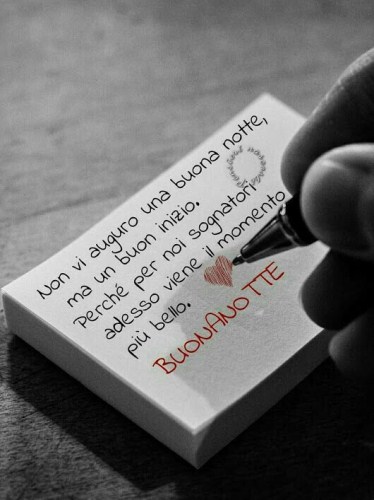 Non vi auguro una buona notte,
ma un buon inizio.
Perché per noi sognatori
adesso viene il momento
più bello.
BUONANOTTE